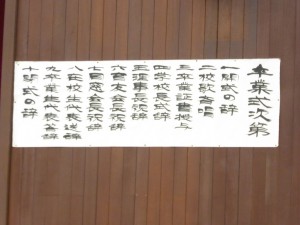 卒業式次第
一開式の辞
二校歌斉唱
三卒業証書授与
四学校長式辞
五理事長祝辞
六育友会長祝辞
七同窓会長祝辞
八在校生代表送辞
九卒業生代表答辞
十閉式の辞